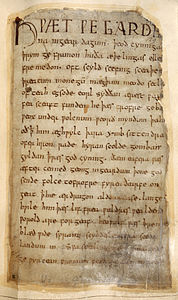 HǷÆT ǷE GARDE
na ingear dagum þeod cyninga
þrym gefrunon huða æþelingas elle
fremedon. oft scyld scefing sceaþe
þreatum monegū mægþum meodo setla
ofteah egsode eorl syððan ærest ƿear
fea sceaft funden he þæs frofre geba
ƿeox under ƿolcnum ƿeorð myndum þah
oð þ him æghƿylc þara ymb sittendra
ofer hron rade hyran scolde gomban
gyldan þ ƿæs god cyning. ðæm eafera ƿæs
æfter cenned geong in geardum þone god
sende folce tofrofre fyren ðearfe on
geat þ hie ær drugon aldor ase. lange
hƿile him þæs lif frea ƿuldres ƿealdend
ƿorold are forgeaf. beoƿulf ƿæs breme
blæd ƿide sprang scyldes eafera scede
landum in. sceal
fromum feoh